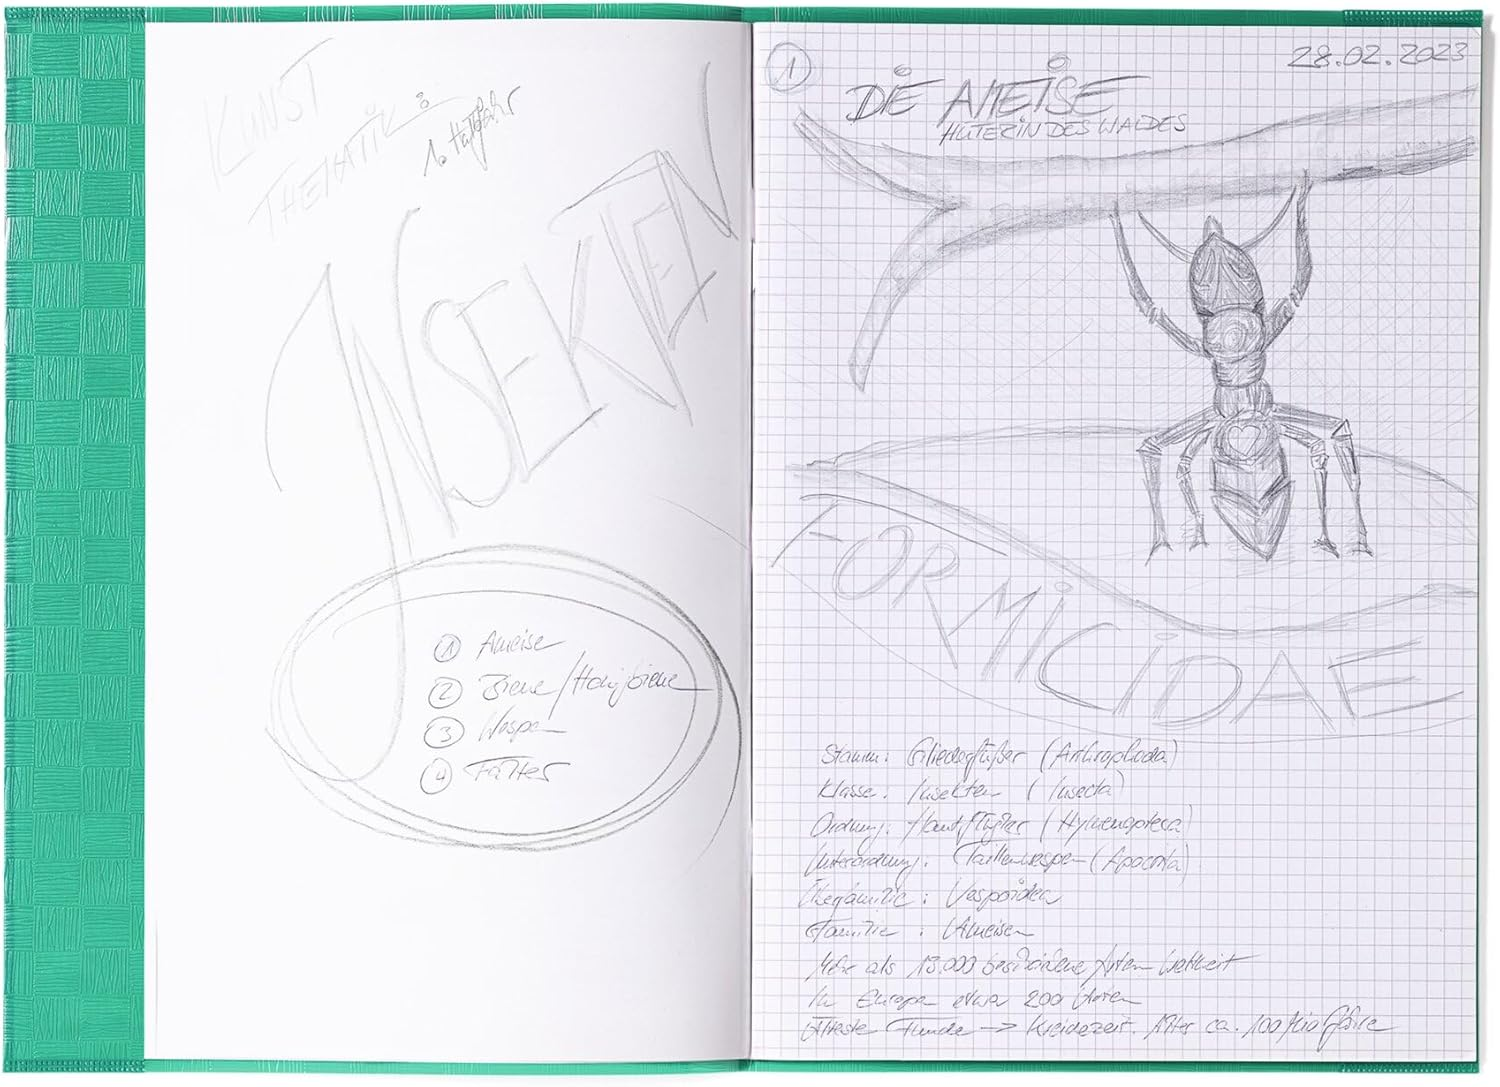 KUNST
THEMATIK:
1. Halbjahr
INSEKTEN
1 Ameise
2 Biene/Honigbiene
3 Wespen
4 Falter
1
28.02.2023
DIE AMEISE
HÜTERIN DES WALDES
FORMICIDAE
Stamm: Gliederfüßer (Arthrophoda)
Klasse: Insekten (Insecta)
Ordnung: Hautflügler (Hymenoptera)
Unterordnung: Taillenwespen (Apocrita)
Überfamilie: Vespoidea
Familie: Ameisen
Mehr als 13.000 beschriebene Arten Weltweit
In Europa etwa 200 Arten
Älteste Funde -> Kreidezeit. Alter ca. 100 Mio Jahre